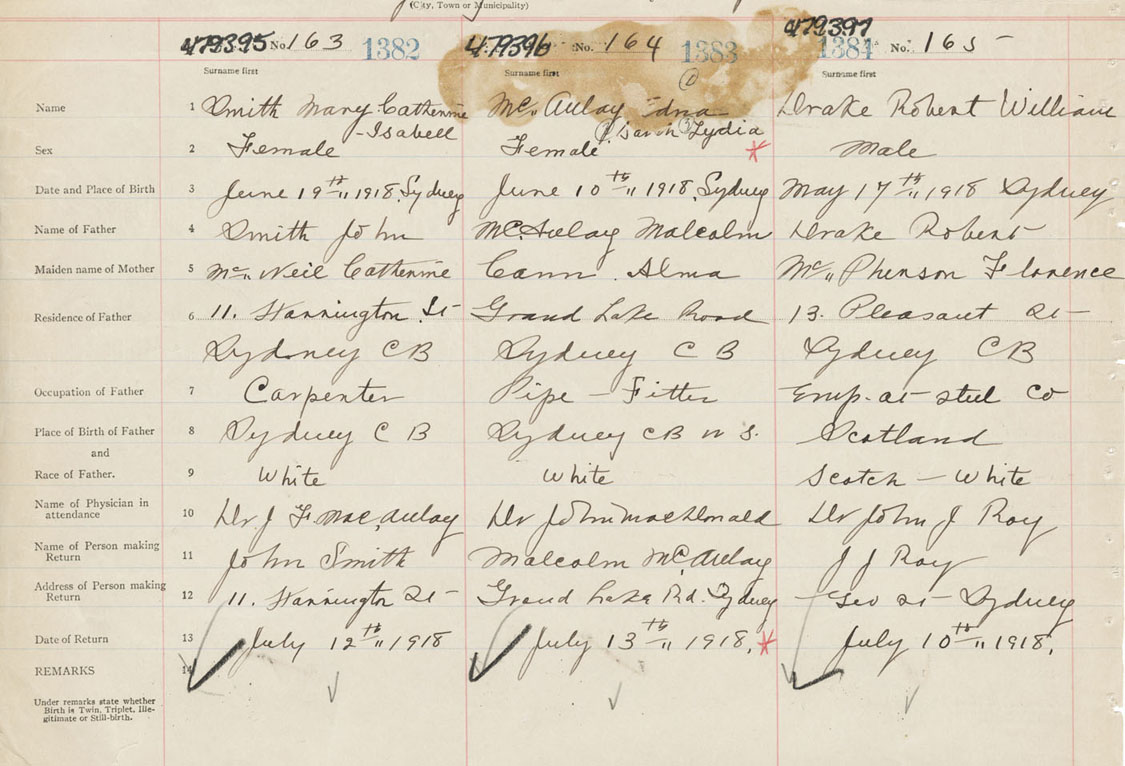 (City, Town or Municipality)
479395 No. 163 1382 479396 No. 164 1383 479397 1384 No. 165
Surname first Surname first Surname first
①
Name 1 Smith Mary Catherine Mc. Aulay Edna Drake Robert William
-Isabell Sarah Lydia
Sex 2 Female Female * Male
Date and Place of Birth 3 June 19th 1918. Sydney June 10th 1918. Sydney May 17th 1918 Sydney
Name of Father 4 Smith John Mc. Aulay Malcolm Drake Robert
Maiden name of Mother 5 Mc. Neil Catherine Cann. Alma Mc. Pherson Florence
Residence of Father 6 11. St Grand Lake Road 13. Pleasant St
Sydney C B Sydney C B Sydney CB
Occupation of Father 7 Carpenter Pipe - Fitter Emp. at steel Co
Place of Birth of Father 8 Sydney C B Sydney CB N S. Scotland
and
Race of Father. 9 White White Scotch - White
Name of Physician in
attendance 10 Dr J F. MacAulay Dr John MacDonald Dr John J Roy
Name of Person making
Return 11 John Smith Malcolm McAulay J J Roy
Address of Person making
Return 12 11. St Grand Lake Rd. Sydney Geo St - Sydney
Date of Return 13 July 12th 1918 July 13th 1918. * July 10th 1918.
REMARKS 14
Under remarks state whether
Birth is Twin, Triplet, Ille-
gitimate or Still-birth.